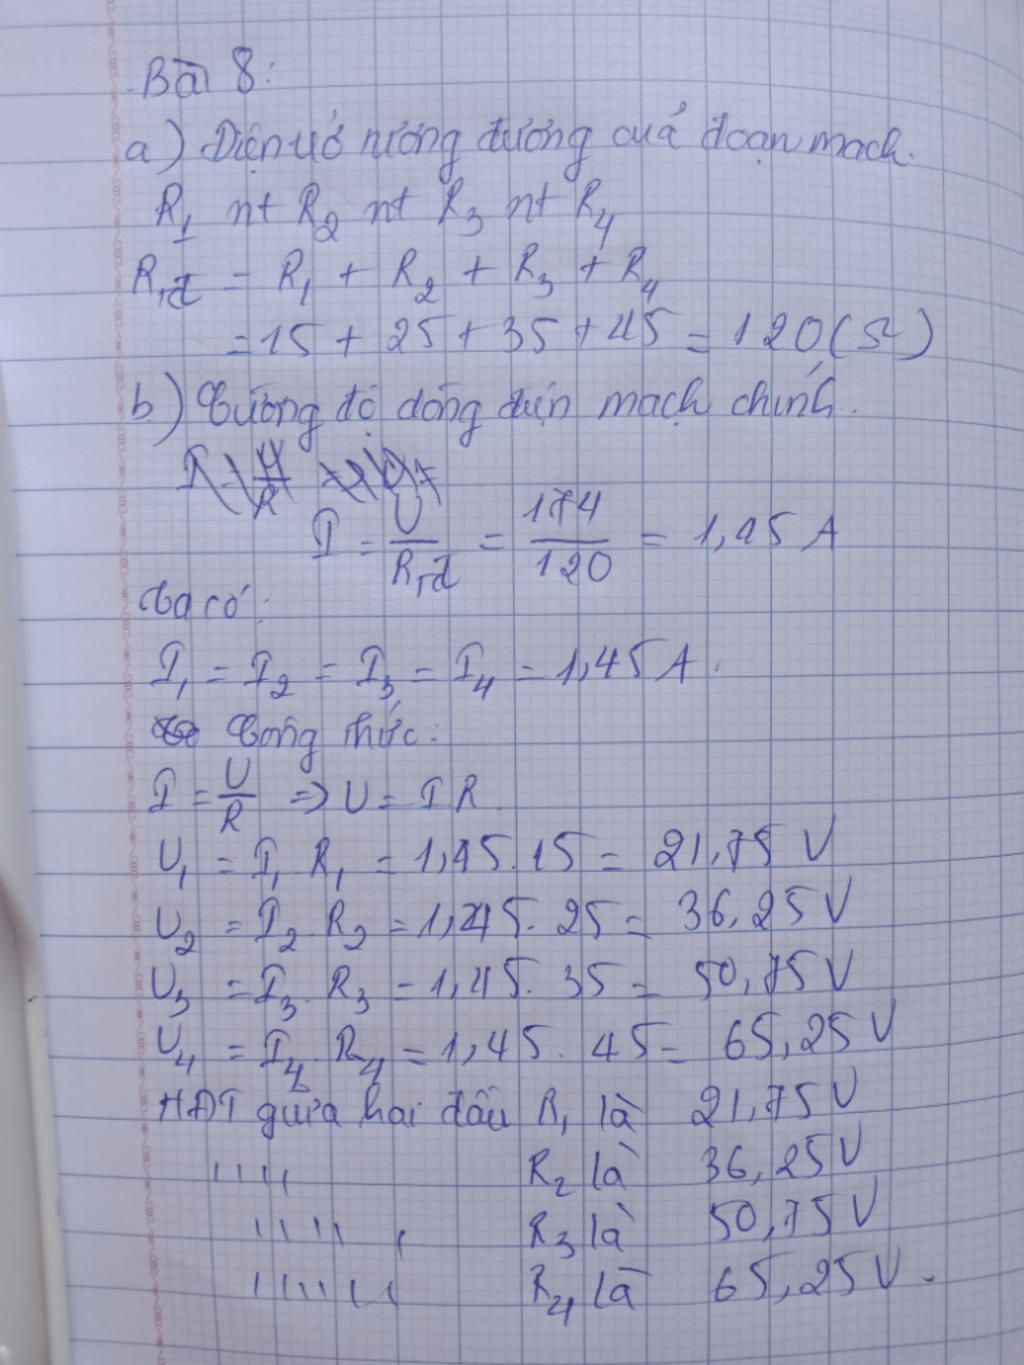 Bài 8:
a) Điện trở tương đương của đoạn mạch.
R₁ nt R₂ nt R₃ nt R₄
Rtđ = R₁ + R₂ + R₃ + R₄
= 15 + 25 + 35 + 45 = 120 (Ω)
b) Cường độ dòng điện mạch chính.
I = U/Rtđ = 174/120 = 1,45 A
Ta có:
I₁ = I₂ = I₃ = I₄ = 1,45 A.
Công thức:
I = U/R => U = I R.
U₁ = I₁ R₁ = 1,45.15 = 21,75 V
U₂ = I₂ . R₂ = 1,45. 25 = 36,25 V
U₃ = I₃ . R₃ = 1,45. 35 = 50,75 V
U₄ = I₄ . R₄ = 1,45. 45 = 65,25 V
HĐT giữa hai đầu R₁ là 21,75 V
'''' R₂ là 36,25 V
'''' , R₃ là 50,75 V
'''''' R₄ là 65,25 V.